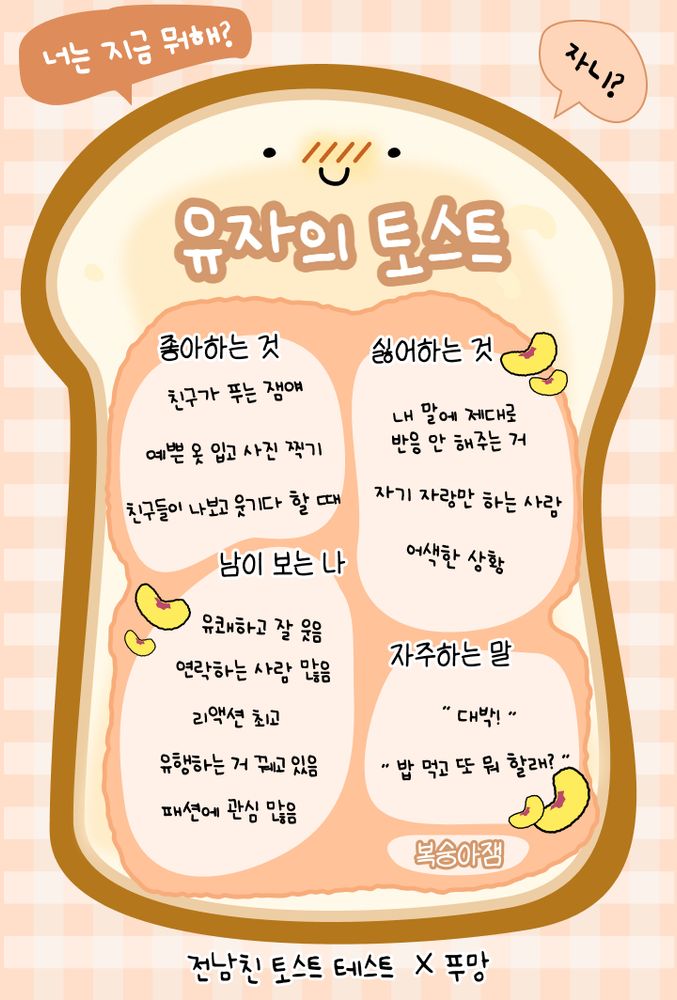 너는 지금 뭐해?
자니?
유자의 토스트
좋아하는 것
친구가 푸는 잼얘
예쁜 옷 입고 사진 찍기
친구들이 나보고 웃기다 할 때
싫어하는 것
내 말에 제대로
반응 안 해주는 거
자기 자랑만 하는 사람
어색한 상황
남이 보는 나
유쾌하고 잘 웃음
연락하는 사람 많음
리액션 최고
유행하는 거 꿰고 있음
패션에 관심 많음
자주하는 말
" 대박! "
" 밥 먹고 또 뭐 할래? "
복숭아잼
전남친 토스트 테스트 X 푸망